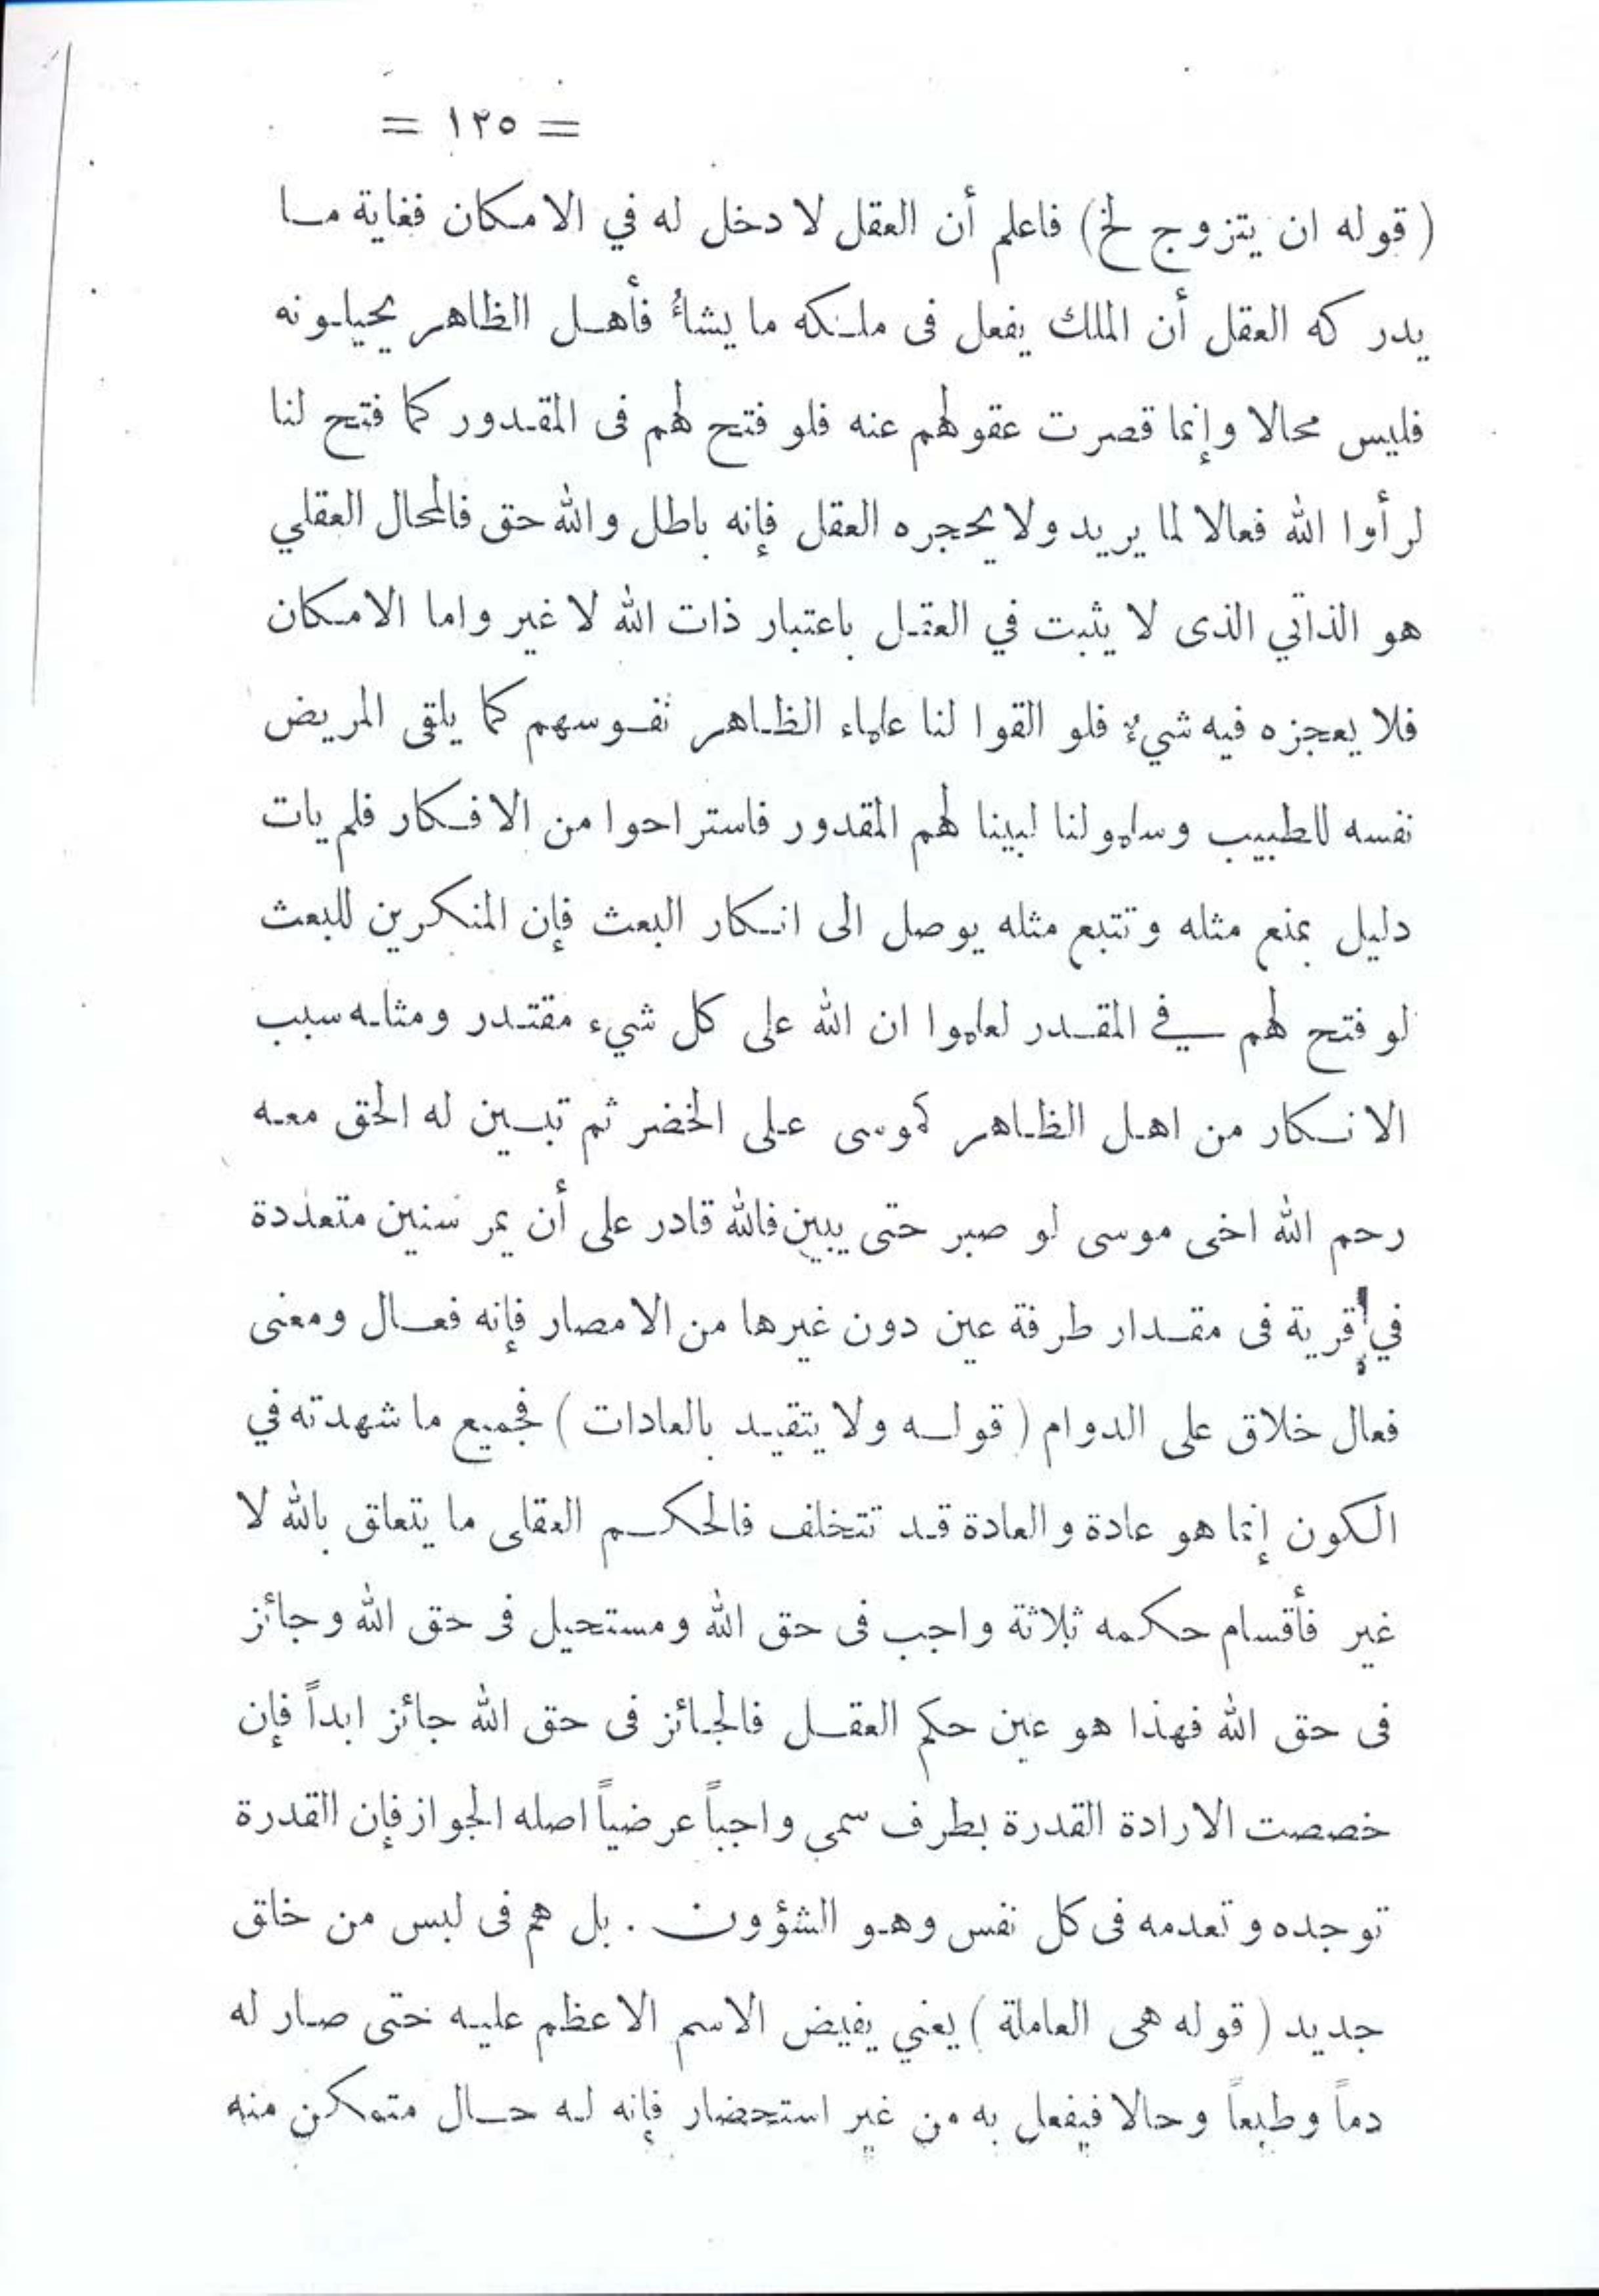 = ١٢٥ =
( قوله ان يتزوج لخ) فاعلم أن العقل لا دخل له في الامكان فغاية ما
يدركه العقل أن الملك يفعل فى ملكه ما يشاءُ فأهل الظاهر يحيلونه
فليس محالا وإنما قصرت عقولهم عنه فلو فتح لهم فى المقدور كما فتح لنا
لرأوا الله فعالا لما يريد ولا يحجره العقل فإنه باطل والله حق فالمحال العقلي
هو الذاتي الذى لا يثبت في العقل باعتبار ذات الله لا غير واما الامكان
فلا يعجزه فيه شيءٌ فلو القوا لنا علماء الظاهر نفوسهم كما يلقى المريض
نفسه للطبيب وسلموا لنا لبينا لهم المقدور فاستراحوا من الافكار فلم يات
دليل بمنع مثله وتتبع مثله يوصل الى انكار البعث فإن المنكرين للبعث
لو فتح لهم في المقدر لعلموا ان الله على كل شيء مقتدر ومثله سبب
الانكار من اهل الظاهر كموسى على الخضر ثم تبين له الحق معه
رحم الله اخى موسى لو صبر حتى يبين فالله قادر على أن يمر سنين متعددة
في قرية فى مقدار طرفة عين دون غيرها من الامصار فإنه فعال ومعنى
فعال خلاق على الدوام ( قوله ولا يتقيد بالعادات ) فجميع ما شهدته في
الكون إنما هو عادة والعادة قد تتخلف فالحكم العقلى ما يتعلق بالله لا
غير فأقسام حكمه ثلاثة واجب فى حق الله ومستحيل فى حق الله وجائز
فى حق الله فهذا هو عين حكم العقل فالجائز فى حق الله جائز ابداً فإن
خصصت الارادة القدرة بطرف سمى واجباً عرضياً اصله الجواز فإن القدرة
توجده وتعدمه فى كل نفس وهو الشؤون . بل هم فى لبس من خلق
جديد ( قوله هى العاملة ) يعني يفيض الاسم الاعظم عليه حتى صار له
دماً وطبعاً وحالا فيفعل به من غير استحضار فإنه له حال متمكن منه